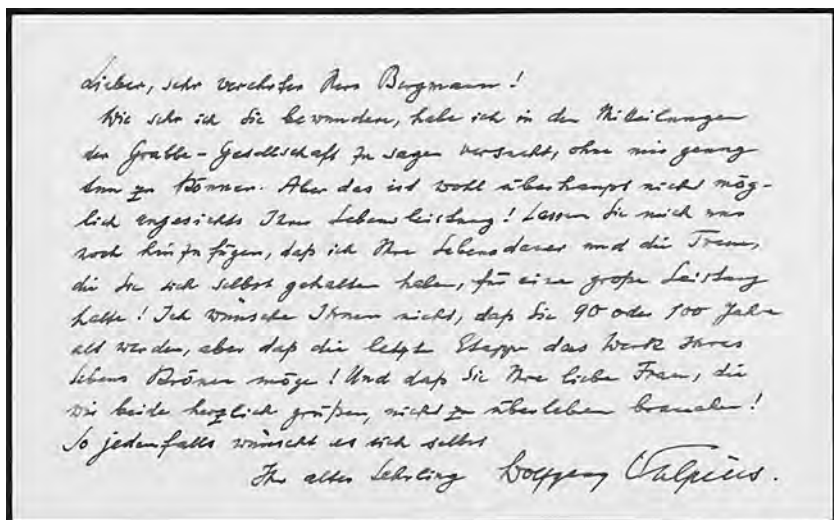 Lieber, sehr verehrter Herr Bergmann!
Wie sehr ich Sie bewundere, habe ich in den Mitteilungen
der Grabbe-Gesellschaft zu sagen versucht, ohne mir genug
tun zu können. Aber das ist wohl überhaupt nicht mög-
lich angesichts Ihrer Lebensleistung! Lassen Sie mich nur
noch hinzufügen, daß ich Ihre Lebensdauer und die Treue,
die Sie sich selbst gehalten haben, für eine große Leistung
halte! Ich wünsche Ihnen nicht, daß Sie 90 oder 100 Jahre
alt werden, aber daß die letzte Etappe das Werk Ihres
Lebens krönen möge! Und daß Sie Ihre liebe Frau, die
wir beide herzlich grüßen, nicht zu überleben brauchen!
So jedenfalls wünscht es sich selbst
Ihr alter Lehrling Wolfgang Vulpius.